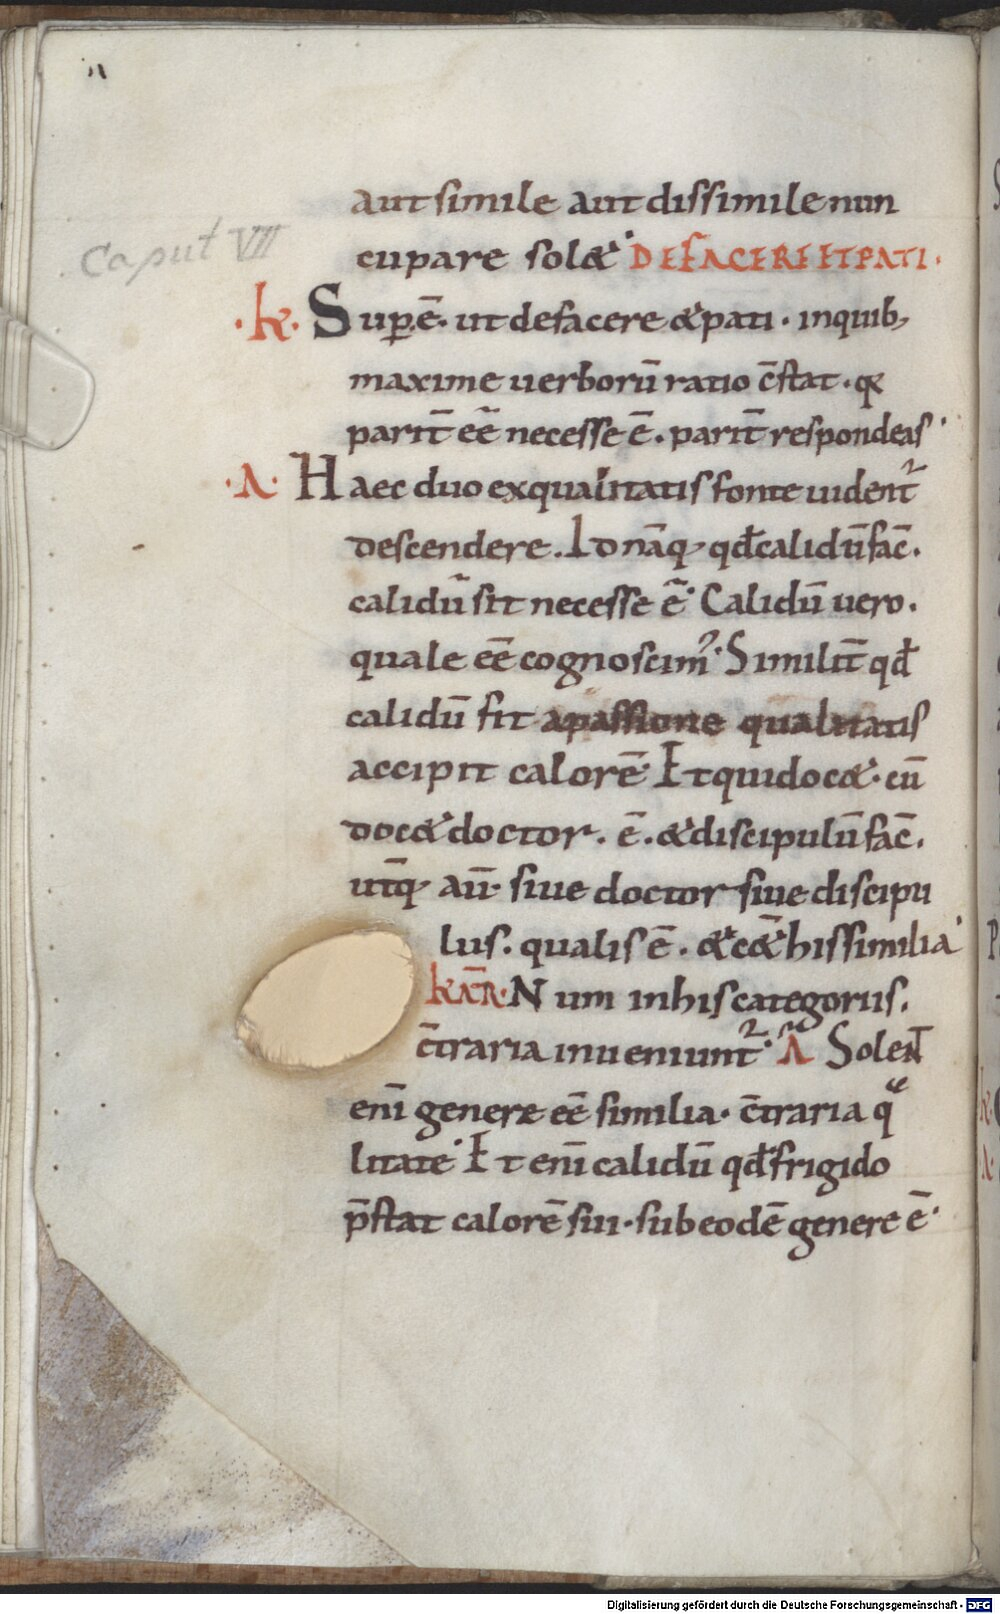 Caput VII
aut simile aut dissimile nun
cupare sol& DE FACERE ET PATI·
·k· Sup̱ ē· ut defacere &pati· inquib;
maxime uerborū ratio c̄stat· q;
parit̄ eē necesse ē· parit̄ respondeas·
·A· Haec duo exqualitatis fonte uident̄
descendere. Id nāq; qđ calidū fac̄.
calidū sit necesse ē· Calidū uero.
quale eē cognoscim᷒· Similit̄ qđ
calidū fit apassione qualitatis
accipit calorē· Et qui doc&· cū
doc& doctor. ē. &discipulū fac̄.
ut̄q; aū· siue doctor siue discipu
lus. qualis ē. &c& his similia·
KAR̄· Num inhis categoriis.
c̄traria inueniunt̄· Ā Solent
enī genere eē similia· c̄traria qͣ
litate· Et enī calidū qđ frigido
p̄stat calorē sui· sub eodē genere ē·
Digitalisierung gefördert durch die Deutsche Forschungsgemeinschaft - DFG